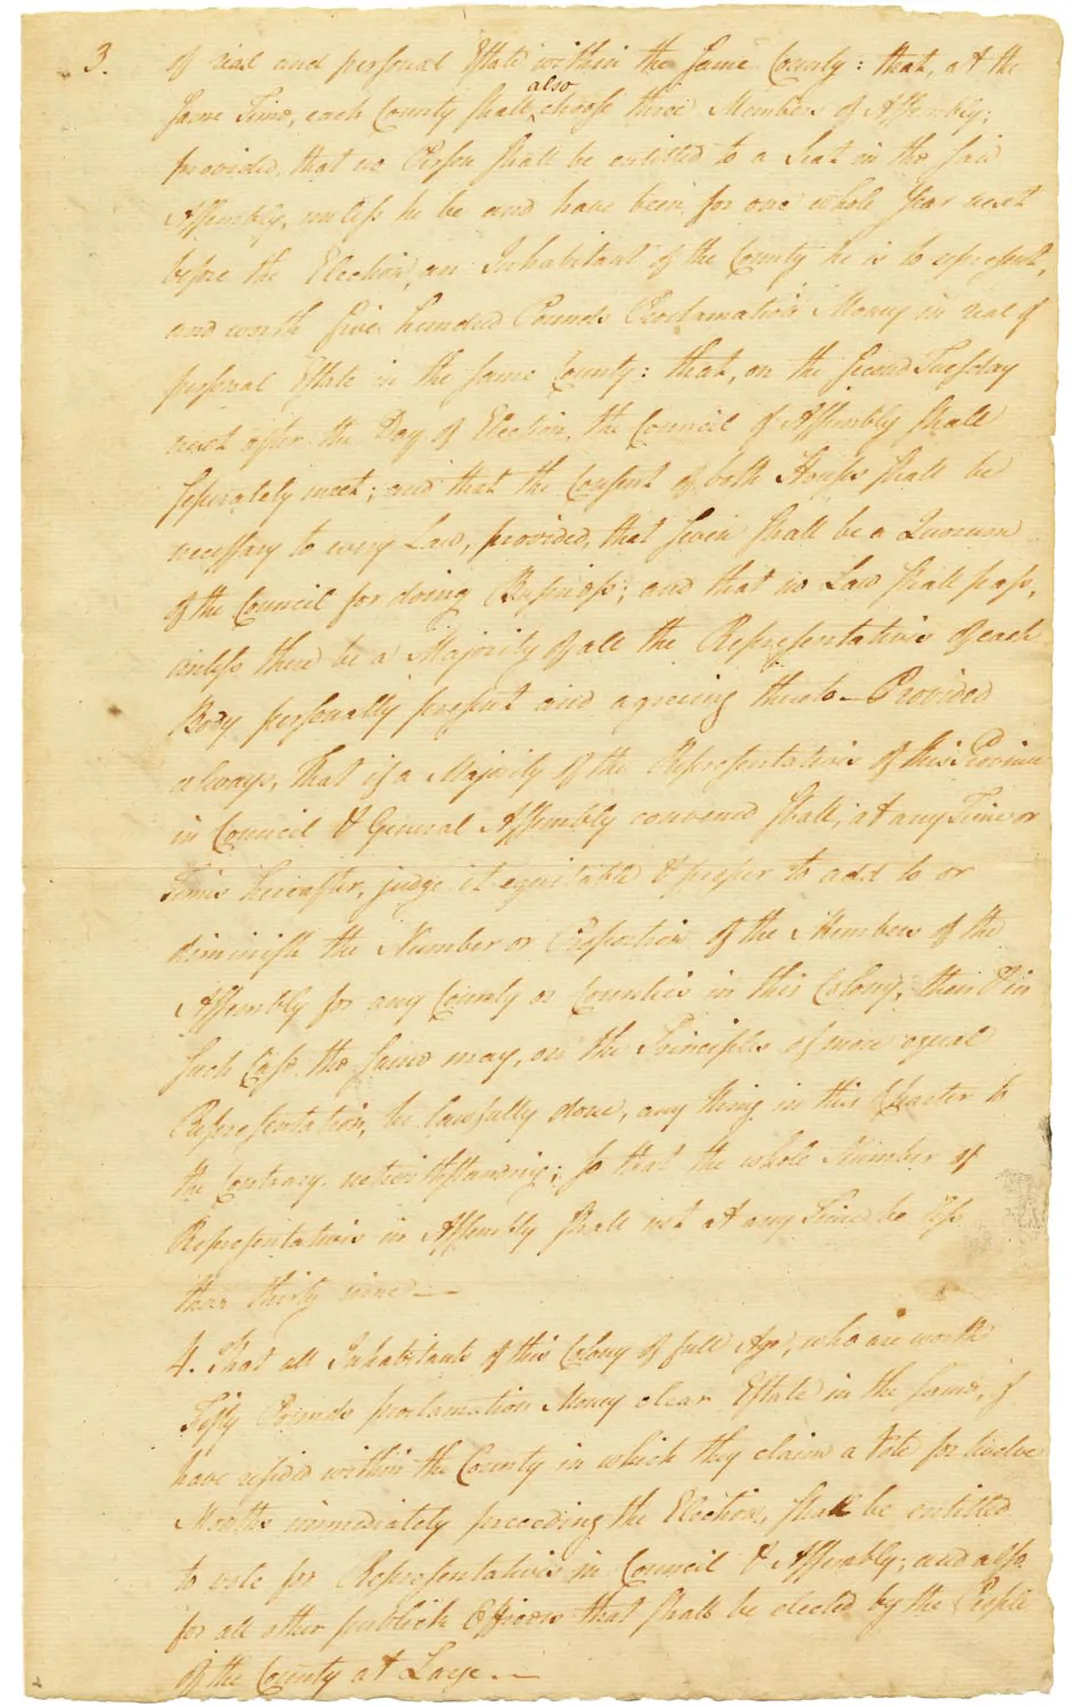 3. of real and personal Estate within the same County: that, at the
same Time, each County shall also choose three Members of Assembly;
provided, that no Person shall be entitled to a Seat in the said
Assembly, unless he be and have been for one whole Year next
before the Election, an Inhabitant of the County he is to represent,
and worth five hundred Pounds Proclamation Money in real &
personal Estate in the same County: that, on the second Tuesday
next after the Day of Election, the Council & Assembly shall
seperately meet; and that the Consent of both Houses shall be
necessary to every Law, provided, that seven shall be a Quorum
of the Council for doing Business; and that no Law shall pass,
unless there be a Majority of all the Representatives of each
Body personally present and agreeing thereto — Provided
always, That if a Majority of the Representatives of this Province
in Council & General Assembly convened shall, at any Time or
Times hereafter, judge it equitable & proper to add to or
diminish the Number or Proportion of the Members of the
Assembly for any County or Counties in this Colony, then & in
such Case the same may, on the Principles of more equal
Representation, be lawfully done, any thing in this Charter to
the Contrary notwithstanding; so that the whole Number of
Representatives in Assembly shall not at any Time be less
than thirty nine —
4. That all Inhabitants of this Colony of full Age, who are worth
Fifty Pounds proclamation Money clear Estate in the same, &
have resided within the County in which they claim a Vote for twelve
Months immediately preceeding the Election, shall be entitled
to vote for Representatives in Council & Assembly; and also
for all other publick Officers that shall be elected by the People
of the County at Large —